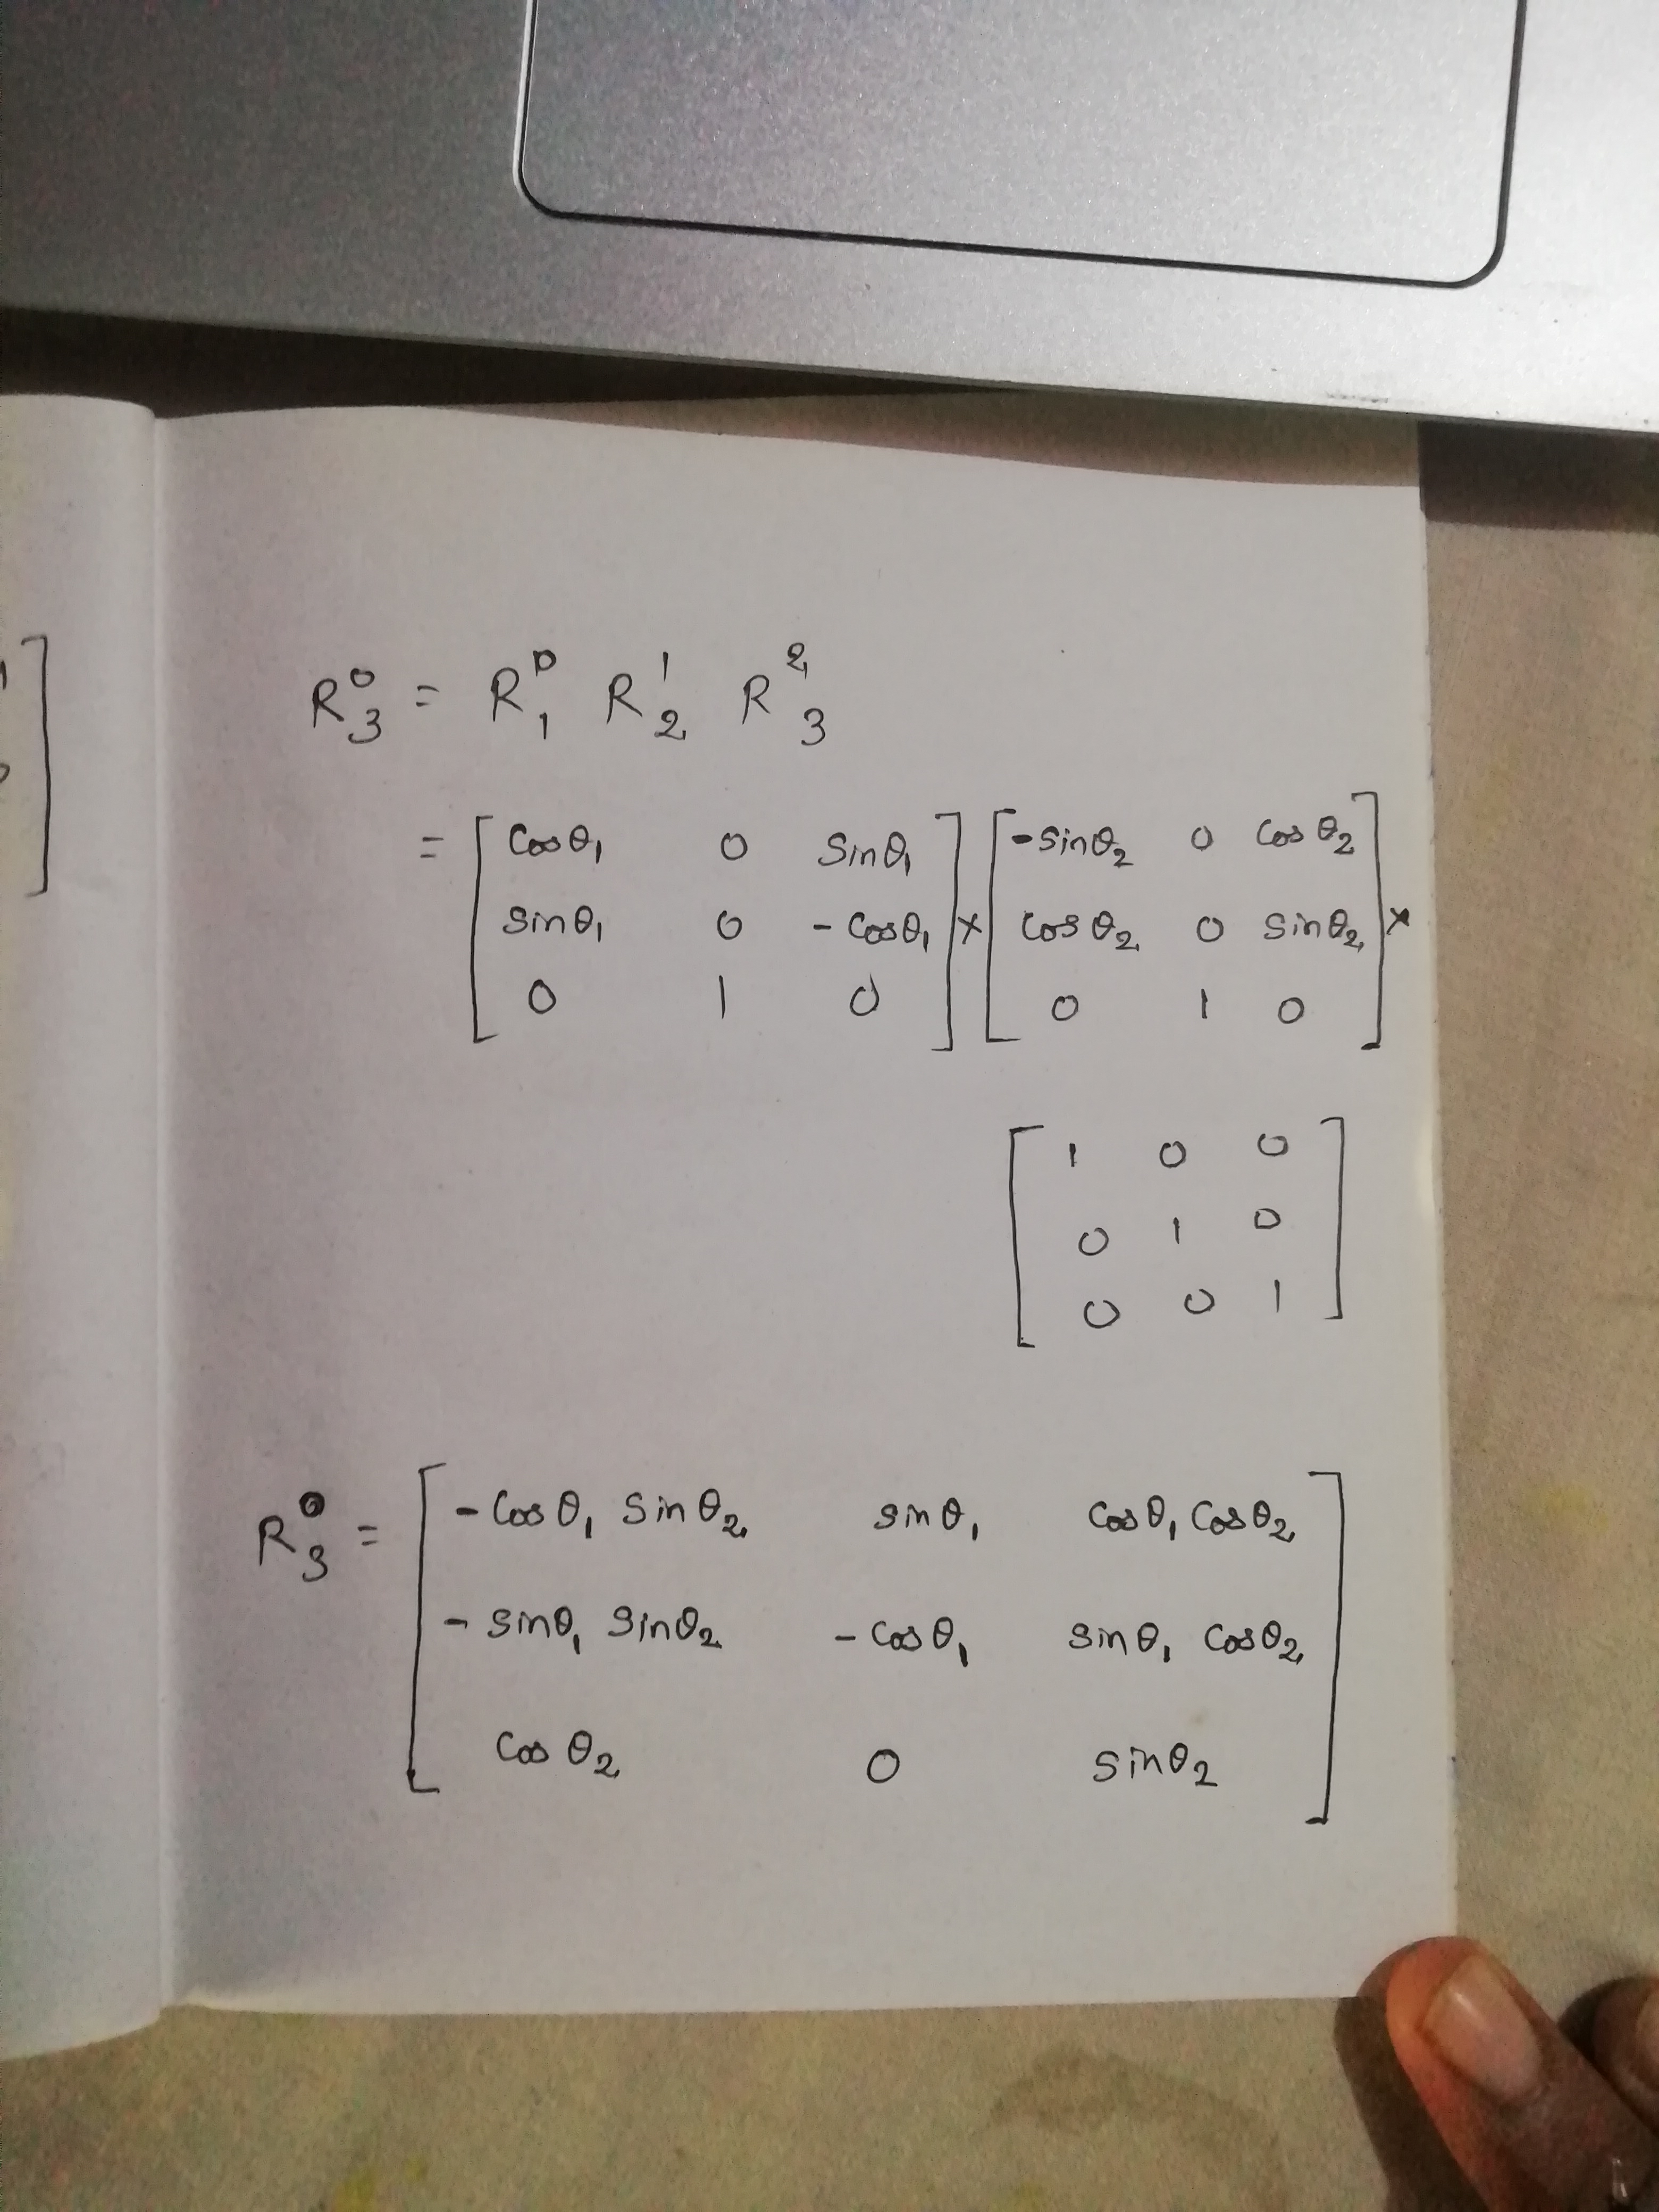 R⁰₃ = R⁰₁ R¹₂ R²₃
= [ Cosθ₁ 0 Sinθ₁ ] [ -Sinθ₂ 0 Cosθ₂ ]
[ Sinθ₁ 0 -Cosθ₁ ] × [ Cosθ₂ 0 Sinθ₂ ] ×
[ 0 1 0 ] [ 0 1 0 ]
[ 1 0 0 ]
[ 0 1 0 ]
[ 0 0 1 ]
R⁰₃ = [ -Cosθ₁ Sinθ₂ Sinθ₁ Cosθ₁ Cosθ₂ ]
[ -Sinθ₁ Sinθ₂ -Cosθ₁ Sinθ₁ Cosθ₂ ]
[ Cosθ₂ 0 Sinθ₂ ]